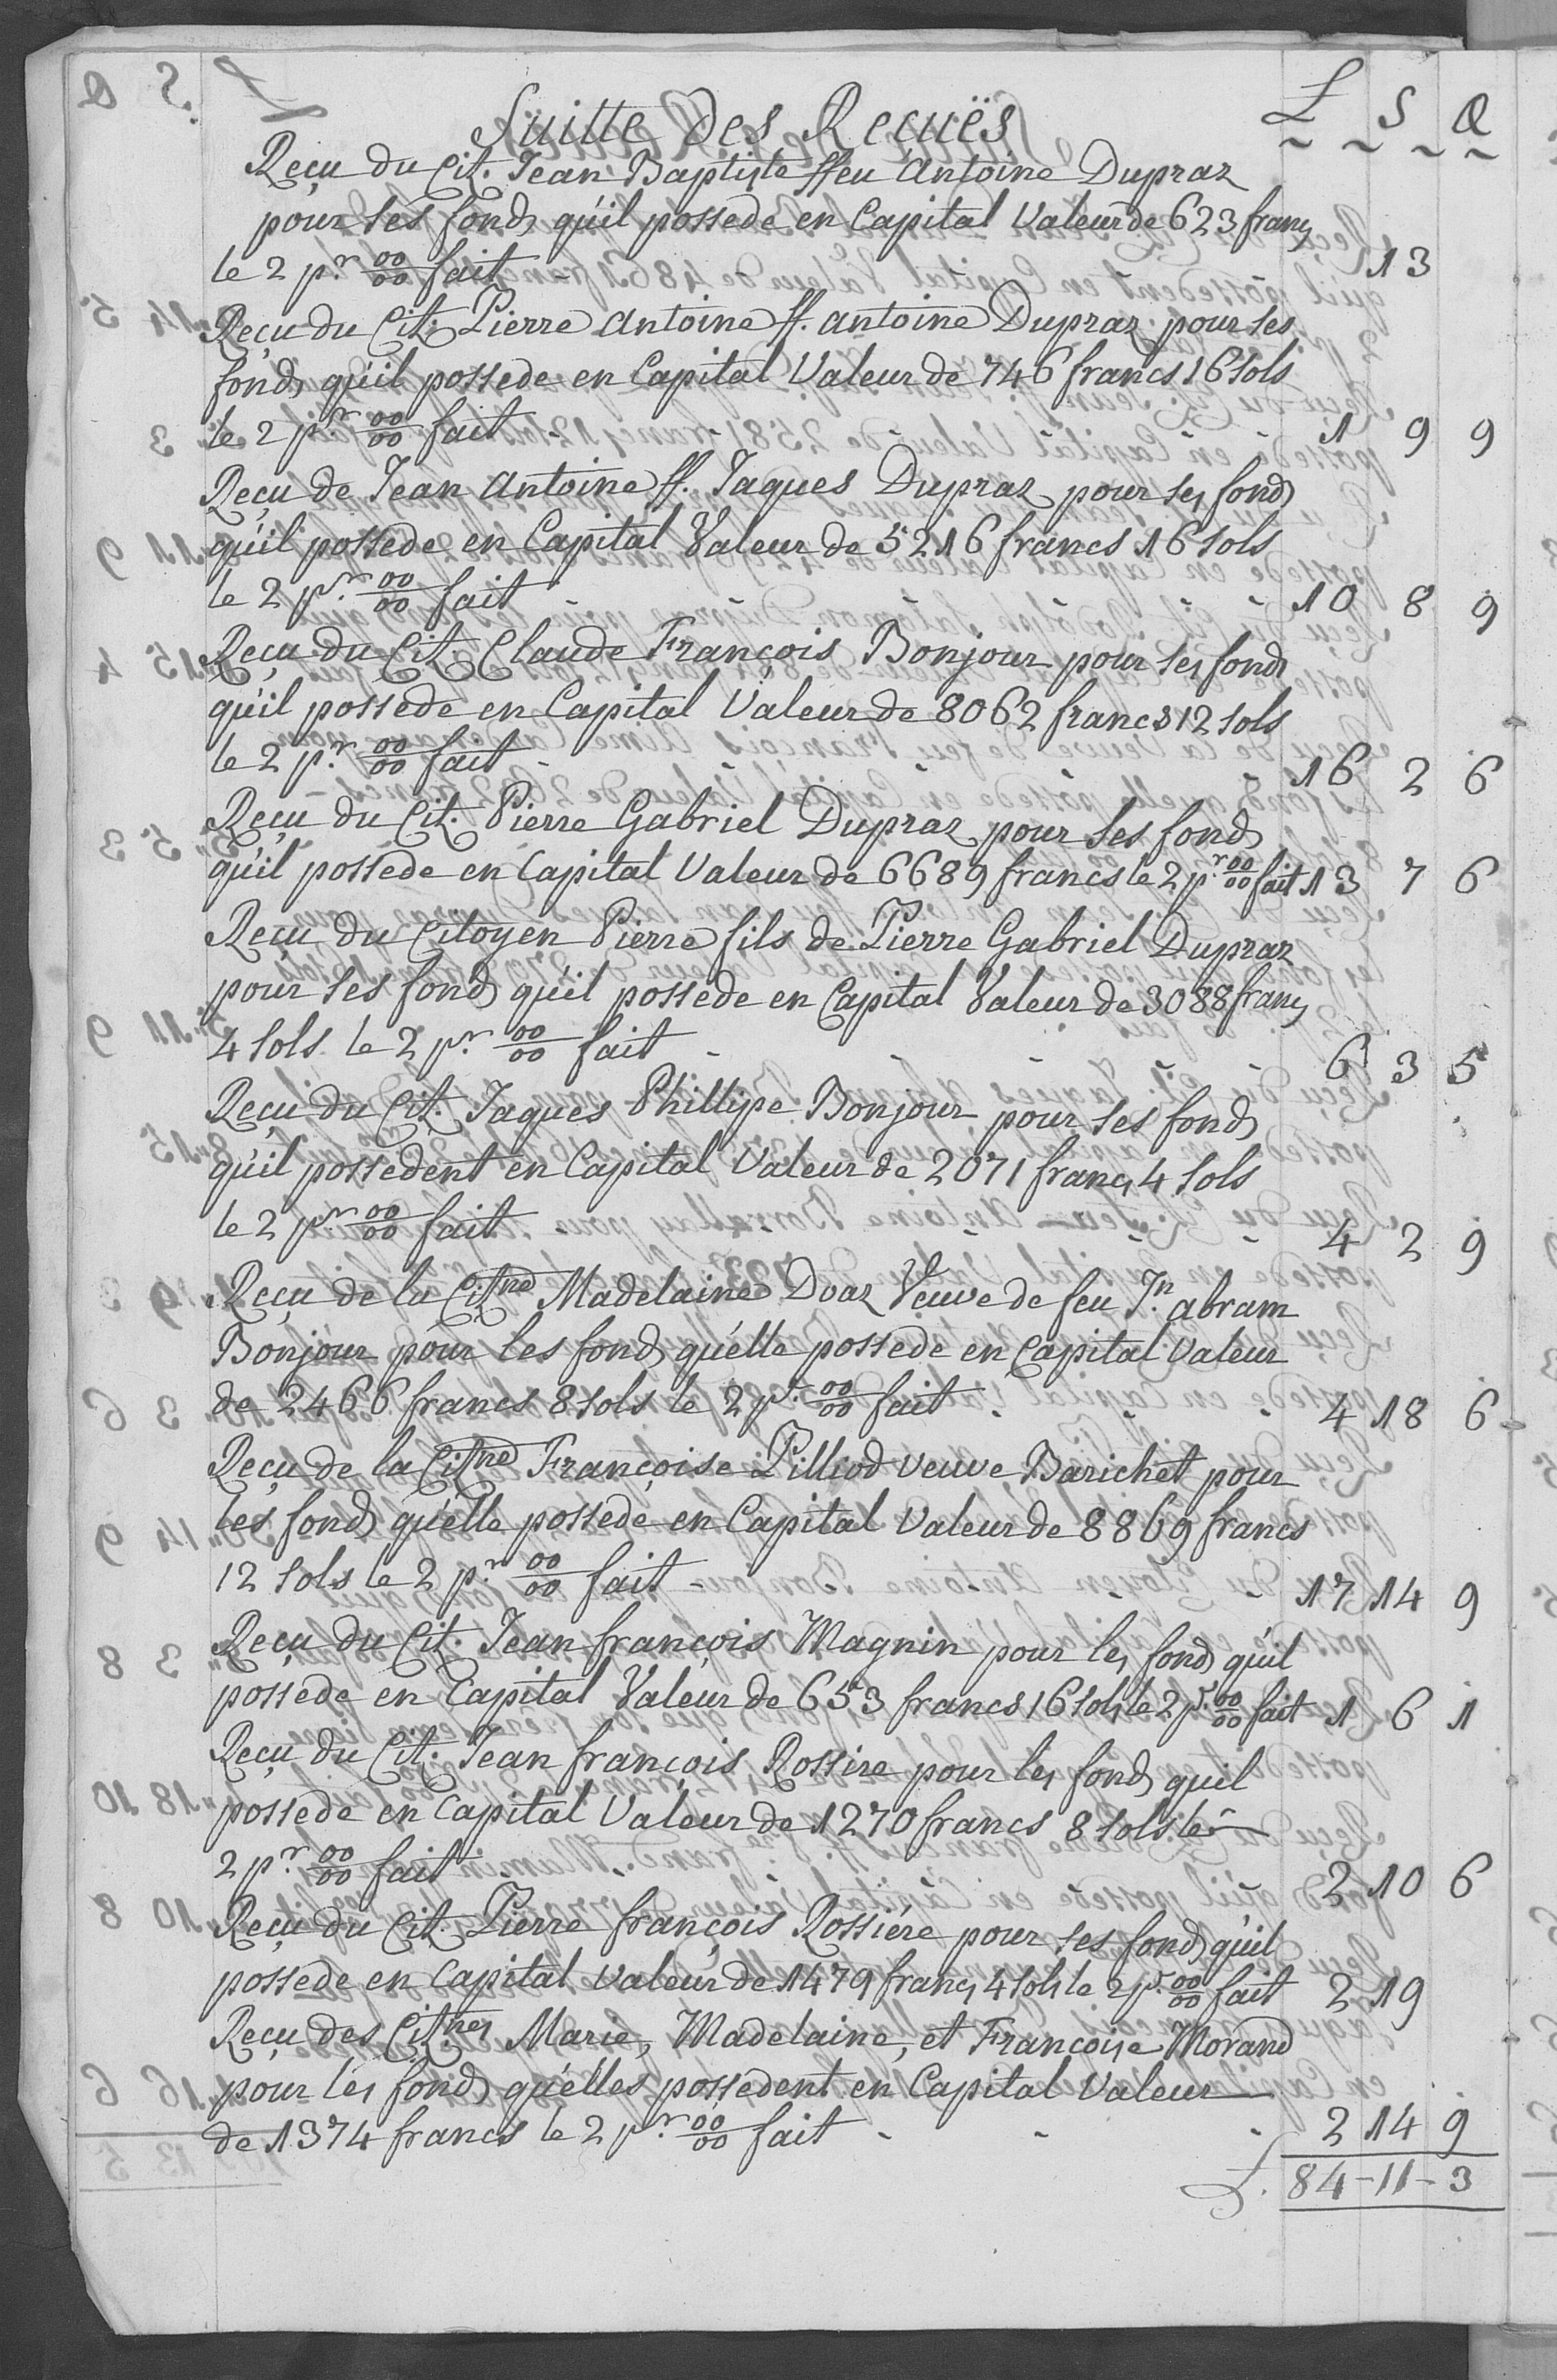 Suitte Des Recuës
L S Q
Reçu du Cit. Jean Baptiste ffeu Antoine Dupraz
pour ses fonds qu'il possede en Capital Valeur de 623 francs
le 2 pr 00/00 fait 13
Reçu du Cit. Pierre Antoine ff. Antoine Dupraz pour ses
fonds qu'il possede en Capital Valeur de 746 francs 16 sols
le 2 pr 00/00 fait 1 9 9
Reçu de Jean Antoine ff. Jaques Dupraz pour ses fonds
qu'il possede en Capital Valeur de 5216 francs 16 sols
le 2 pr. 00/00 fait 10 8 9
Reçu du Cit. Claude François Bonjour pour ses fonds
qu'il possede en Capital Valeur de 8062 francs 12 sols
le 2 pr. 00/00 fait 16 2 6
Reçu du Cit. Pierre Gabriel Dupraz pour ses fonds
qu'il possede en Capital Valeur de 6689 francs le 2 pr 00/00 fait 13 7 6
Reçu du Citoyen Pierre fils de Pierre Gabriel Dupraz
pour ses fonds qu'il possede en Capital Valeur de 3088 francs
4 sols le 2 pr. 00/00 fait 6 3 5
Reçu du Cit. Jaques Phillipe Bonjour pour ses fonds
qu'il possedent en Capital Valeur de 2071 francs 4 sols
le 2 pr 00/00 fait 4 2 9
Reçu de la Citne Madelaine Doaz Veuve de feu Jn. abram
Bonjour pour les fonds qu'elle possede en Capital Valeur
de 2466 francs 8 sols le 2 pr. 00/00 fait 4 18 6
Reçu de la Citne Françoise Pilliod veuve Barichet pour
les fonds qu'elle possede en Capital Valeur de 8869 francs
12 sols le 2 pr. 00/00 fait 17 14 9
Reçu du Cit. Jean françois Magnin pour les fonds qu'il
possede en Capital Valeur de 653 francs 16 sols le 2 pr. 00/00 fait 1 6 1
Reçu du Cit. Jean françois Rossire pour les fonds quil
possede en Capital Valeur de 1270 francs 8 sols le
2 pr. 00/00 fait 2 10 6
Reçu du Cit. Pierre françois Rossiére pour ses fonds qu'il
possede en Capital Valeur de 1479 francs 4 sols le 2 pr. 00/00 fait 2 19
Reçu des Citnes Marie, Madelaine, et Françoise Morand
pour les fonds qu'elles possedent en Capital Valeur
de 1374 francs le 2 pr. 00/00 fait 2 14 9
L. 84-11-3